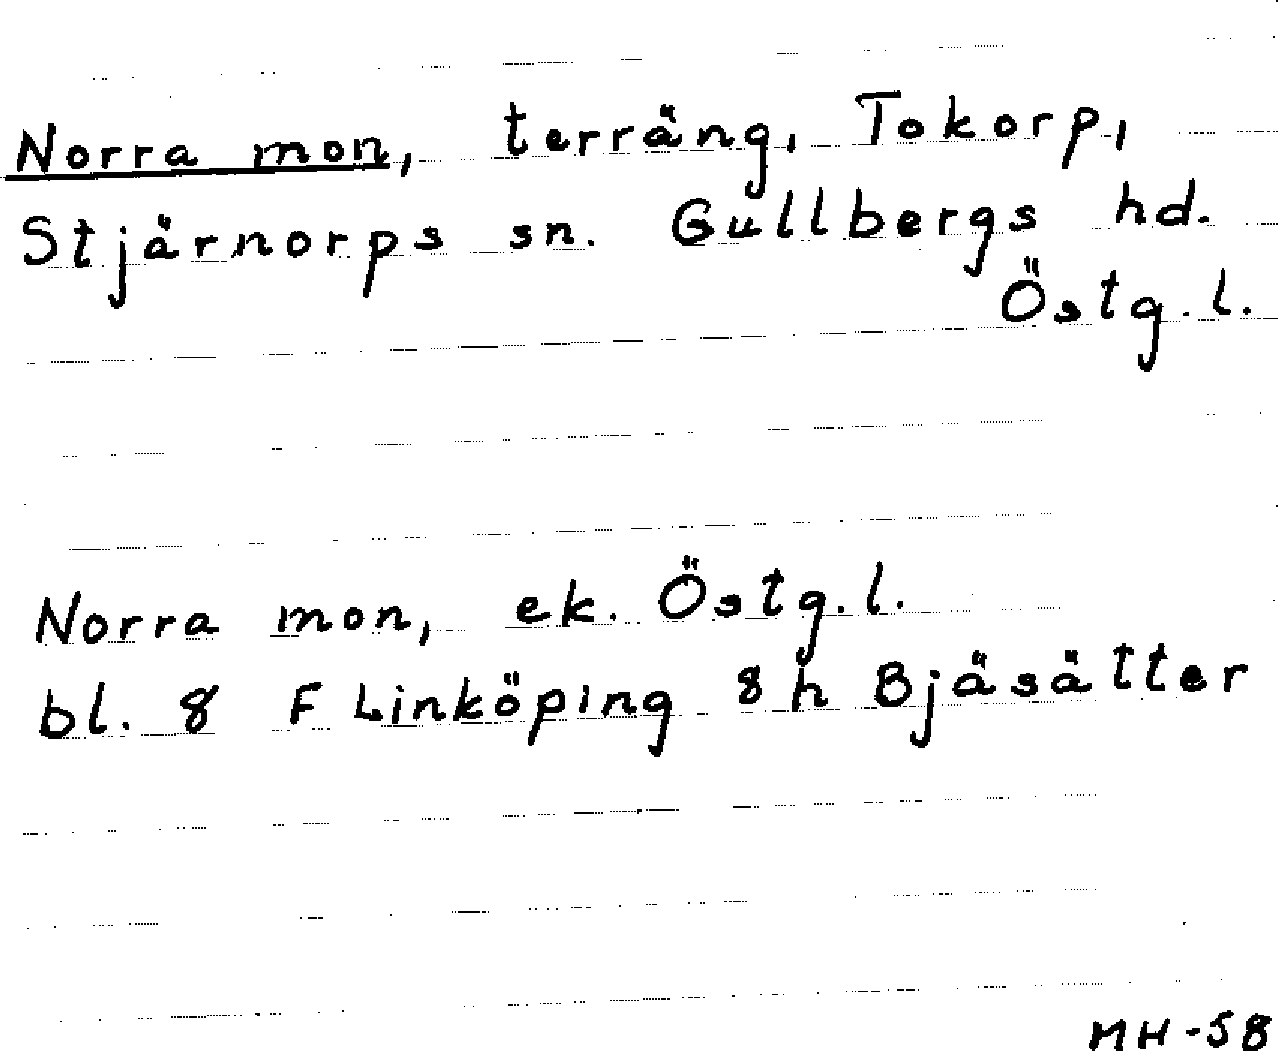 Norra mon, terräng, Tokorp,
Stjärnorps sn. Gullbergs hd.
Östg. l.
Norra mon, ek. Östg. l.
bl. 8 F Linköping 8 h Bjäsätter
MH-58